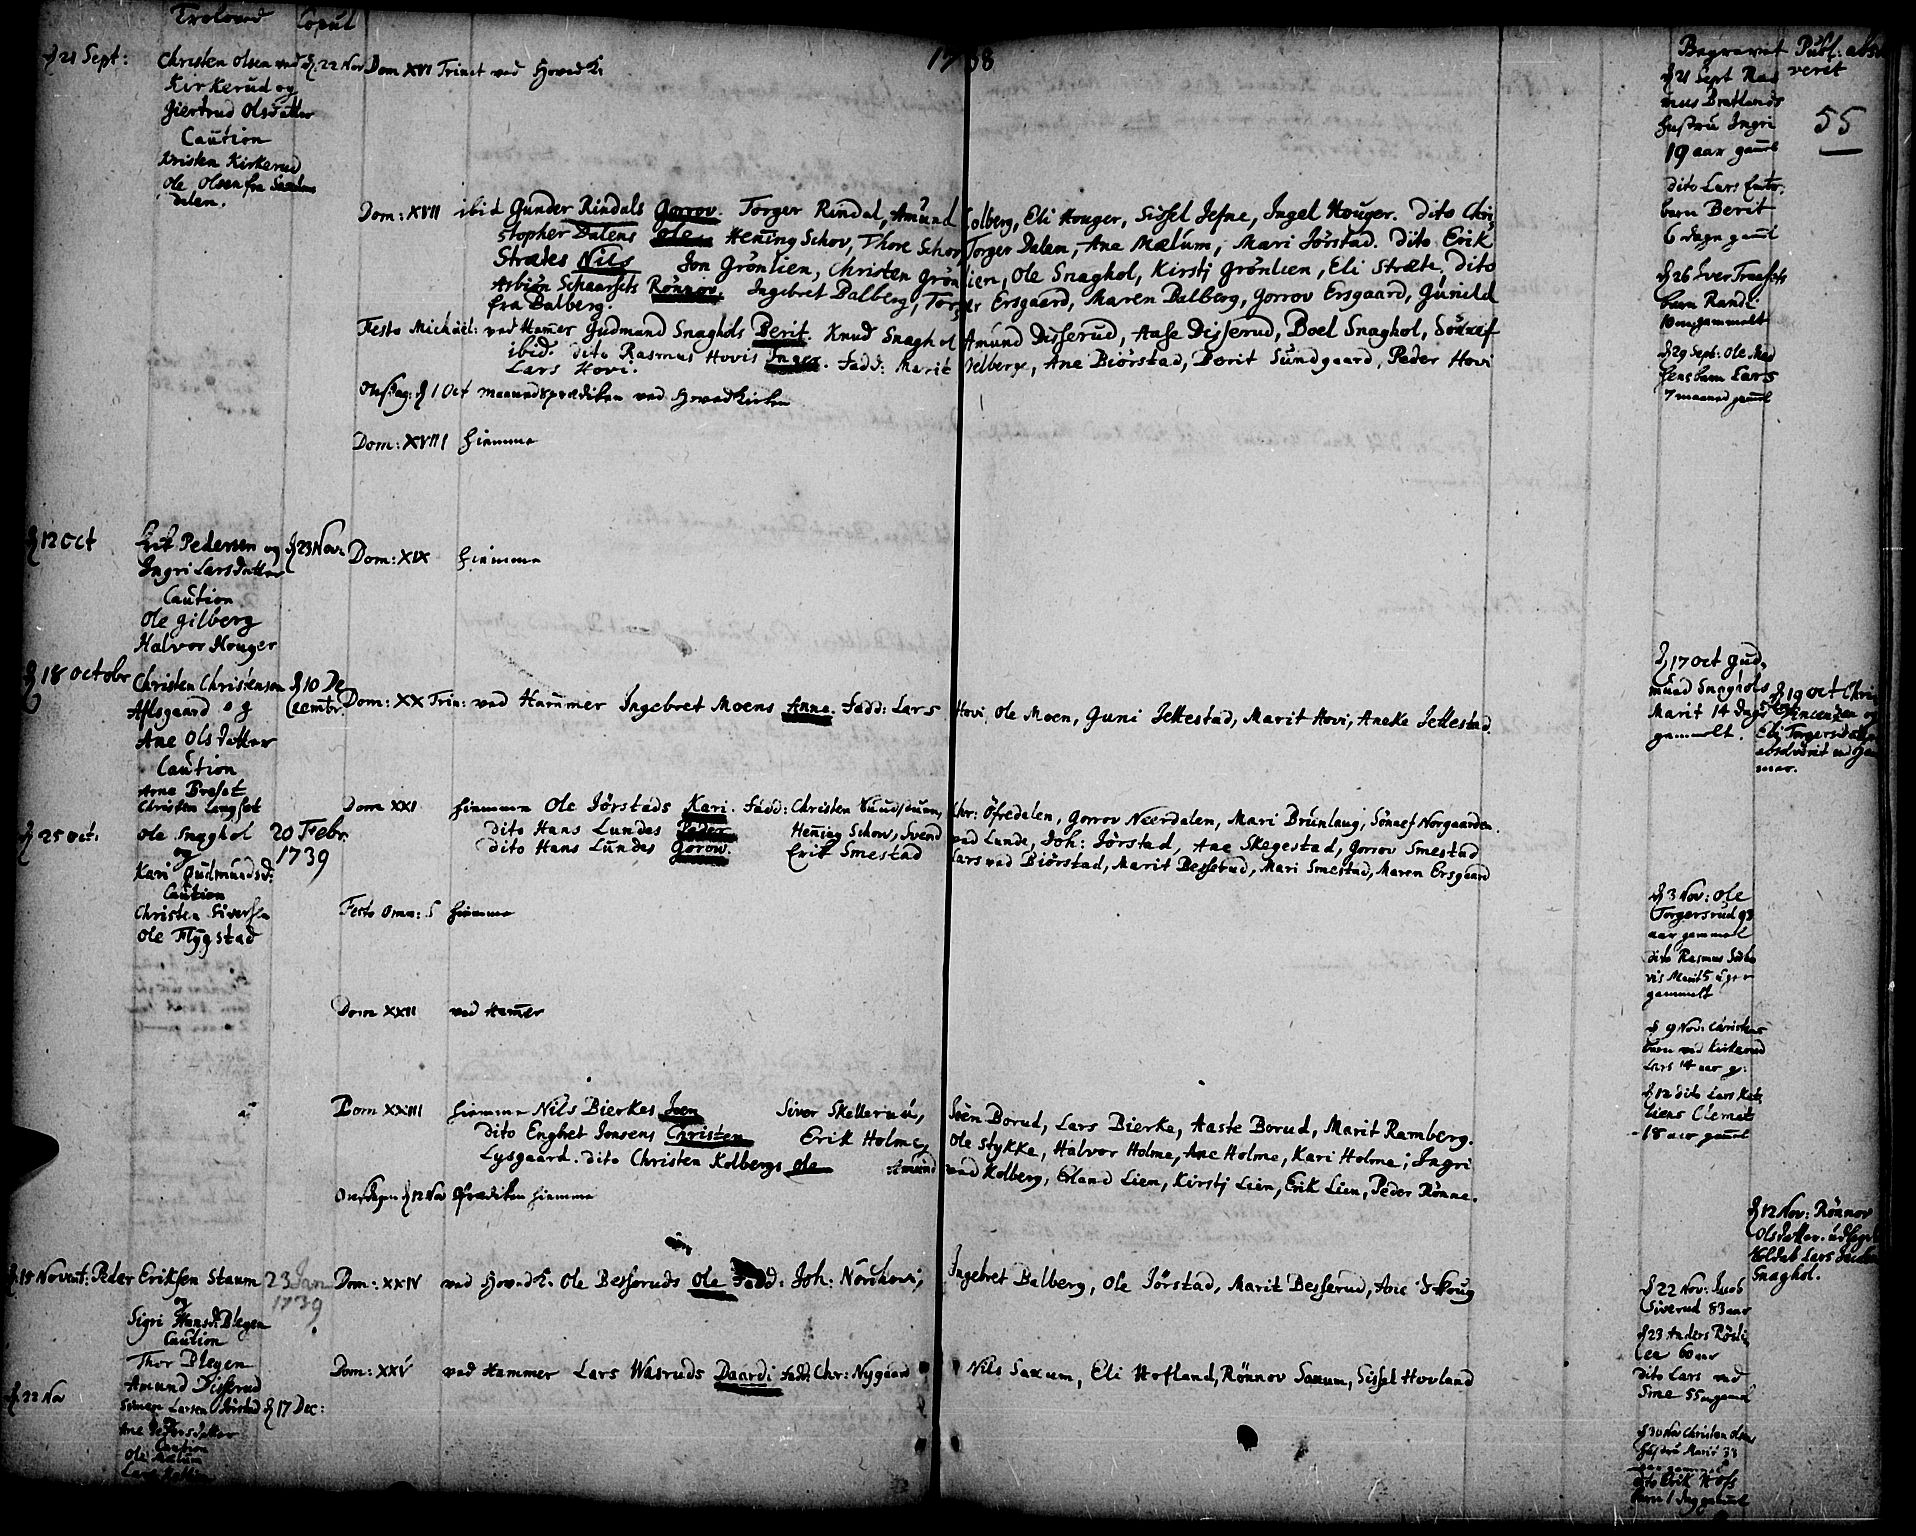 Troloved Copul
1738
Begravit Publ: absol
verit
55
d 21 Sept: Christen Olsen ved d. 22 Nov
Kirkerud og
Giertrud Olsdatter
Caution
Christen Kirkerud
Ole Olsen fra
dalen.
Dom XVI Trinit ved Hoved K:
Dom: XVII ibid Gunder Rindals Gorrov. Torger Rindal, Amund Colberg, Eli Houger, Sissel Jefne, Ingel Houger. Dito Chri,
stopher Dalens Ole Hening Schov, Thore Schov Torger Dalen, Ane Mælum, Mari Jørstad. Dito Erik
Strætes Nils Jon Grønlien, Christen Grønlien, Ole Snaghol, Kirstj Grønlien, Eli Stræte. Dito
Asbiøn Schaarsets Rønnov. Ingebret Balberg, Torger Ersgaard, Maren Balberg, Gorrov Ersgaard, Gunild
fra Balberg.
Festo Michael: ved Hamer Gudmand Snaghols Berit. Knud Snaghol Amund Disserud, Aase Disserud, Boel Snaghol, Sønnef
ibid. dito Rasmus Hovis Inger. Fadd: Marit Selberg, Ane Biørstad, Berit Sundgaard, Peder Hovi
Lars Hovi.
Onsdag: d 1 Oct maanedsprædiken ved Hovedkirken
Dom: XVIII hiemme
d 12 Oct Erik Pedersen og d 23 Nov:
Ingri Larsdatter
Caution
Ole Gilberg
Halvor Houger
Dom: XIX hiemme
d 18 octobr Christen Christensen d 10 De
Aflsgaard og cembr.
Ane Olsdatter
Caution
Arne Breset
Christen Lengset
Dom: XX Trin: ved Hammer Ingebret Moens Anne. Fadd: Lars Hovi, Ole Moen, Guni Jettestad, Marit Hovi, Aneke Jettestad.
d 25 Oct: Ole Snaghol 20 Febr.
og 1739
Kari Gudmundsd:
Caution
Christen Siversen
Ole Flygstad
Dom XXI hiemme Ole Jørstads Kari. Fadd: Christen Chr: Øfredalen, Gorrov Neerdalen, Mari Brunlaug, Sønnef Norgaarden.
dito Hans Lundes Peder Hening Schov, Svend ved Lunde, Joh: Jørstad, Ane Skegestad, Gorrov Smestad
dito Hans Lundes Gorow. Erik Smestad Lars ved Biørstad, Marit Besserud, Mari Smestad, Maren Ersgaard
Festo Omn: S hiemme
Dom XXII ved Hamer
Dom XXIII hiemme Nils Bierkes Joen Siver Skellerud, Joen Borud, Lars Bierke, Aaste Borud, Marit Ramberg.
dito Engbet Jensens Christen Erik Holme, Ole Stykke, Halvor Holme, Ane Holme, Kari Holme; Ingri
Lysgaard. dito Christen Kolbergs Ole Amund ved Kolberg, Erland Lien, Kirstj Lien, Erik Lien, Peder Rønne.
Onsdagen d 12 Nov Prædiken hiemme
d 15 Novemb: Peder Eriksen Staum 23 Jan
og 1739
Sigri Hansd: Blegen
Caution
Thor Blegen
Amund Disserud
Dom: XXIV ved Hoved K. Ole Besseruds Ole Fadd: Joh: Nordhovi, Ingebret Balberg, Ole Jørstad, Marit Besserud, Ane Skoug
Dom: XXV ved Hammer Lars Wasruds Daardi Fadd: Chr: Nygaard Nils Saxum, Eli Hofland, Rønnov Saxum, Sissel Hovland
d 22 Nov Simen Larsen Jørstad d 17 Dec:
Ane Pedersdatter
Caution
Ole Mælum
Lars
d 21 Sept Ras
mus Bratlands
hustru Ingri
19 aar gaml
dito Lars
barn Berit
6 dage gaml
d 26 Iver
barn Randi
10 gammelt
d 29 Sept: Ole
barn Lars
7 maaned gaml
d 17 Oct Gud,
mund Snaghols
Marit 14 dage
gammelt.
d 19 Oct Chri
Vincentzen og
Eli Torgersdatter
absolverit ved Ham
mer.
d 3 Nov: Ole
Torgersrud 93
aar gammel
dito Rasmus
Marit 5 uger
gammelt
d 9 Nov: Christens
barn ved Kirkerud
Lars 14 aar g:
d 12 dito Lars
liens Clemet
18 aar gaml
d 12 Nov: Rønnov
Olsdatter
Lars
Snaghol.
d 22 Nov: Jacob
Siverud 83 aar
d 23 Anders
60 aar
dito Lars ved
Sme 55 aar gaml
d 30 Nov Christen Olsens
hustru Marit 38
aar gammel
dito Erik Hofs
barn 1 dag gaml